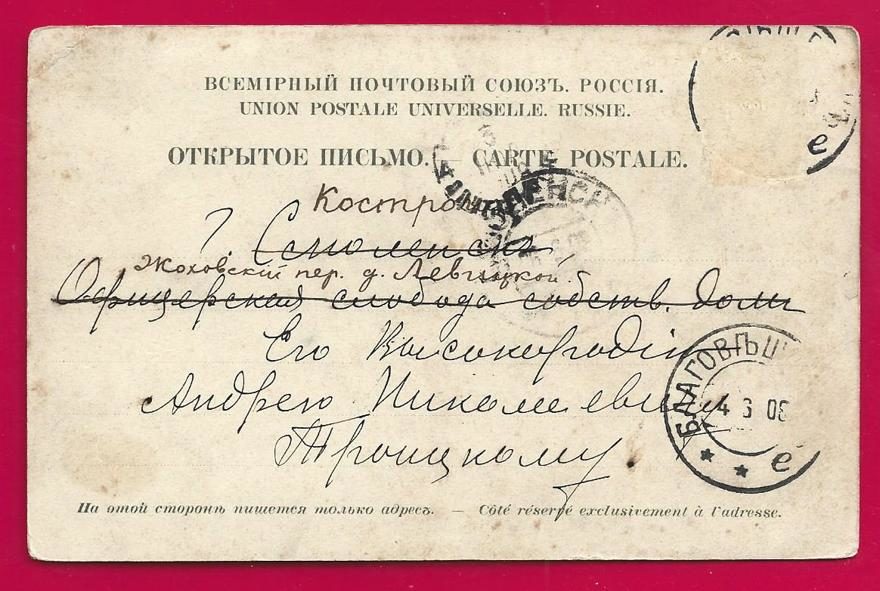 ВСЕМІРНЫЙ ПОЧТОВЫЙ СОЮЗЪ. РОССІЯ.
UNION POSTALE UNIVERSELLE. RUSSIE.
ОТКРЫТОЕ ПИСЬМО. — CARTE POSTALE.
Кострома
г. Смоленскъ
Жоховскій пер. д. Левицкой.
Офицерская слобода собств. домъ
Его Высокородію
Андрею Николаевичу
Троицкому
БЛАГОВѢЩ
4 3 08
е
е
На этой сторонѣ пишется только адресъ. — Côté réservé exclusivement à l'adresse.